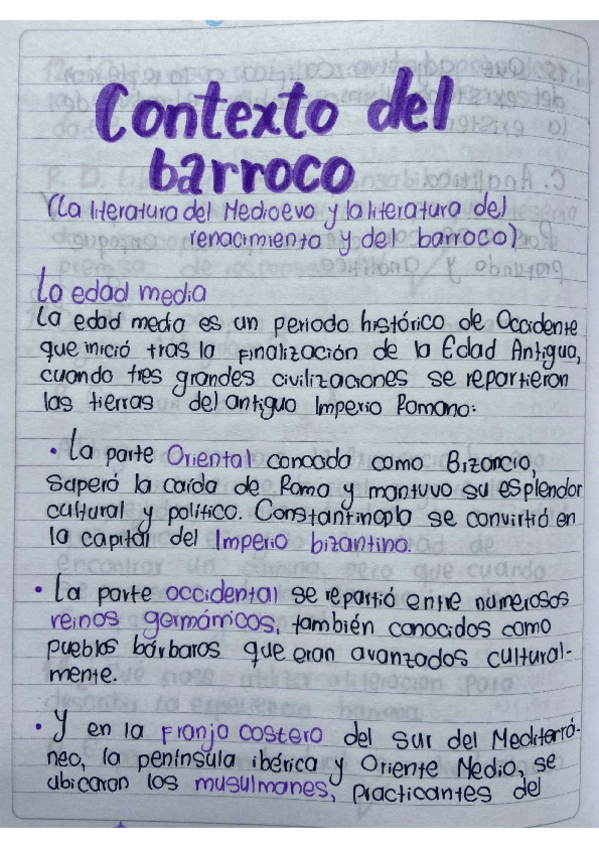 Contexto del
barroco
(La literatura del Medioevo y la literatura del
renacimiento y del barroco)
La edad media
La edad media es un periodo histórico de Occidente
que inició tras la finalización de la Edad Antigua,
cuando tres grandes civilizaciones se repartieron
las tierras del antiguo Imperio Romano:
• La parte Oriental conocida como Bizancio,
superó la caída de Roma y mantuvo su esplendor
cultural y político. Constantinopla se convirtió en
la capital del Imperio bizantino.
• La parte occidental se repartió entre numerosos
reinos germánicos, también conocidos como
pueblos bárbaros que eran avanzados cultural-
mente.
• Y en la franja costera del sur del Mediterrá-
neo, la península ibérica y Oriente Medio, se
ubicaron los musulmanes, practicantes del